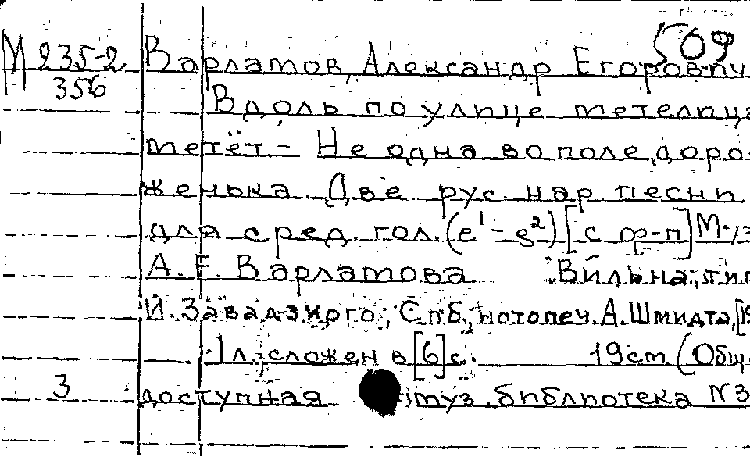 509
М 235-2 Варламов, Александр Егорович
356 Вдоль по улице метелица
метёт - Не одна во поле доро-
женька. Две рус нар песни
для сред. гол. (e¹-g²) [с ф-п] М.
А. Е. Варламова Вильна, тип
И. Завадзкого, Спб, нотопеч. А. Шмидта,
1 л. сложен в [6] с. 19 cm (Общ
3 доступная муз. библиотека N 3